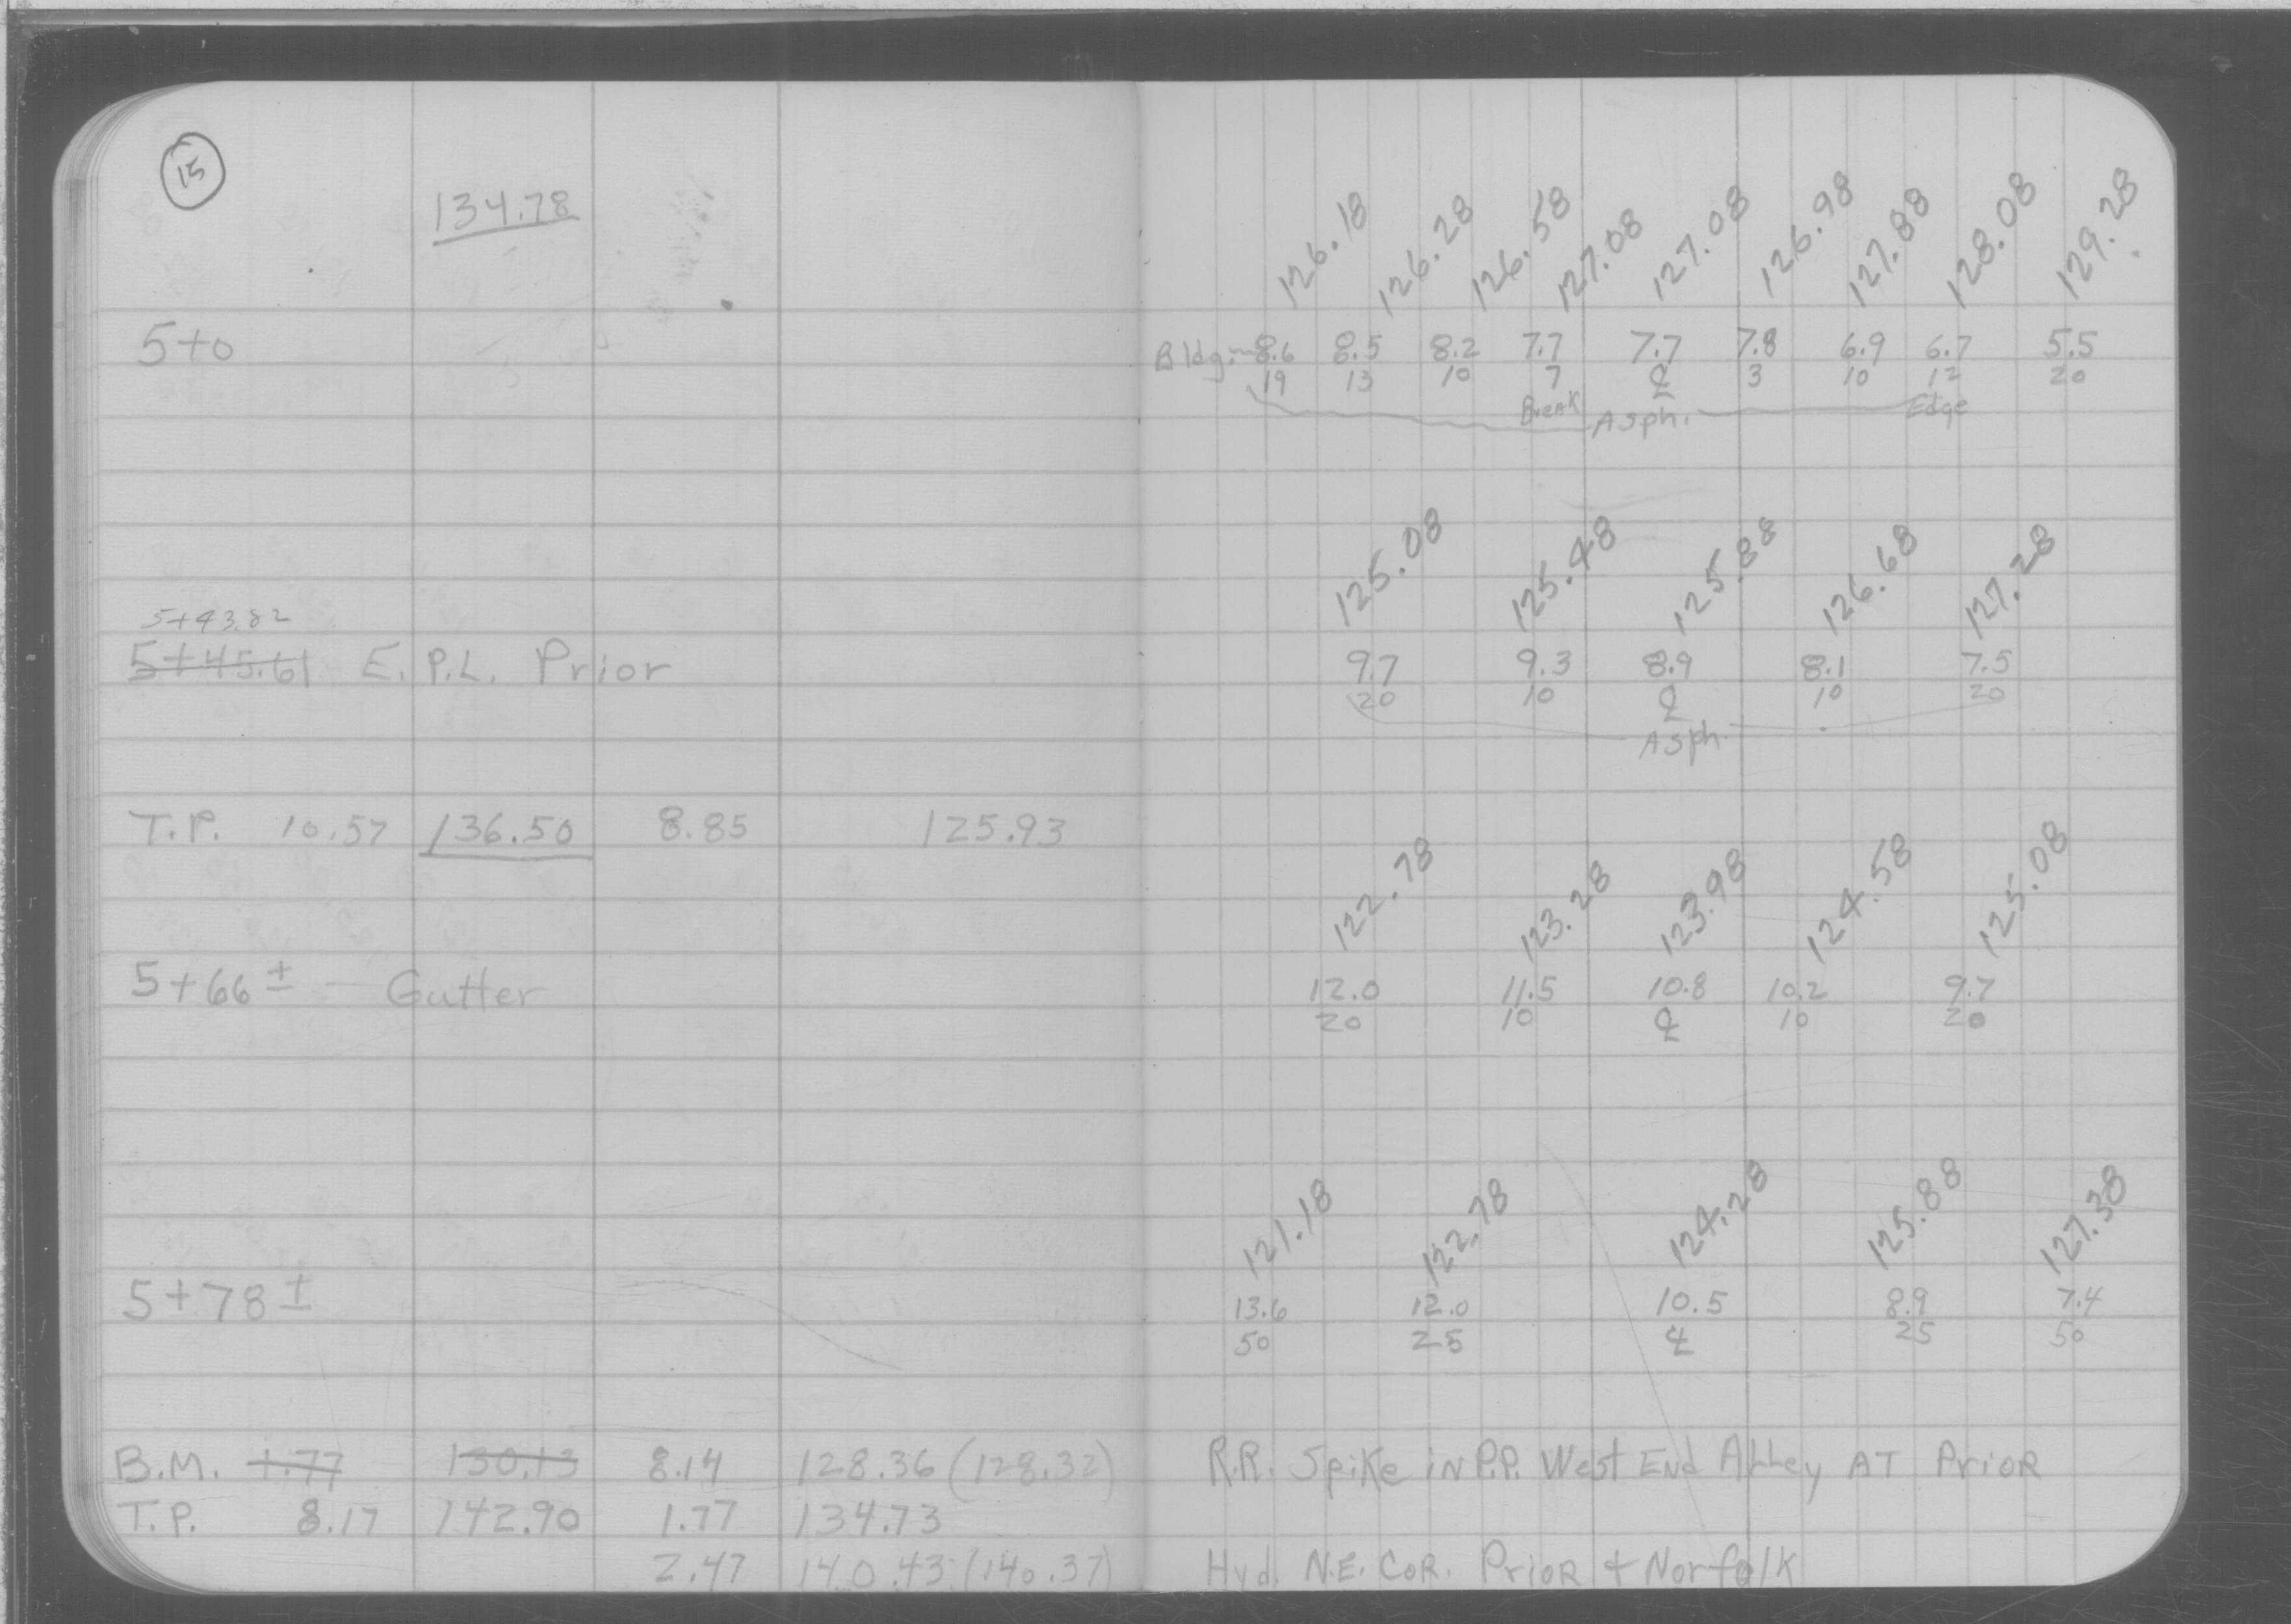 15
134.78
126.18 126.28 126.58 127.08 127.08 126.98 127.88 128.08 129.28
5+0 Bldg. 8.6 8.5 8.2 7.7 7.7 7.8 6.9 6.7 5.5
19 13 10 7 ℄ 3 10 12 20
Break Asph. Edge
125.08 125.48 125.88 126.68 127.28
5+43.82
5+45.61 E. P.L. Prior 9.7 9.3 8.9 8.1 7.5
20 10 ℄ 10 20
Asph.
T.P. 10.57 136.50 8.85 125.93
122.78 123.28 123.98 124.58 125.08
5+66 ± - Gutter 12.0 11.5 10.8 10.2 9.7
20 10 ℄ 10 20
121.18 122.78 124.28 125.88 127.38
5+78 ± 13.6 12.0 10.5 8.9 7.4
50 25 ℄ 25 50
B.M. 1.77 130.13 8.14 128.36 (128.32) R.R. Spike in P.P. West End Alley AT Prior
T.P. 8.17 142.90 1.77 134.73
2.47 140.43 (140.37) Hyd. N.E. Cor. Prior + Norfolk